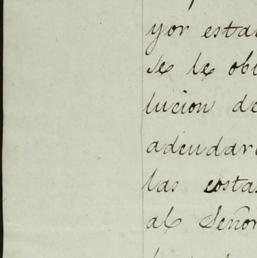 yor esta
se le obl
lucion de
adeudar
las costa
al Señor